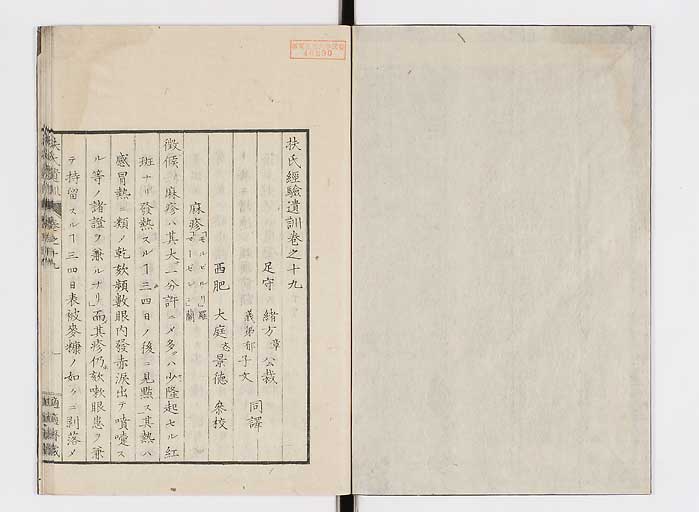 扶氏經驗遺訓卷之十九
足守 緒方章公裁
義弟郁子文 同譯
西肥 大庭忞景德 參校
麻疹「モルビルリ」羅「マーゼレン」蘭
徵候 麻疹ハ其大一分許ニメ多クハ少隆起セル紅
斑ナリ發熱スルヿ三四日ノ後ニ見點ス其熱ハ
感冒熱ニ類ノ乾欬頻數眼內發赤淚出テ噴嚏ス
ル等ノ諸證ヲ兼ルナリ而其疹仍欬嗽眼患ヲ兼
テ持留スルヿ三四日表被麥糠ノ如クニ剝落メ
扶氏遺訓 卷之十九
46290